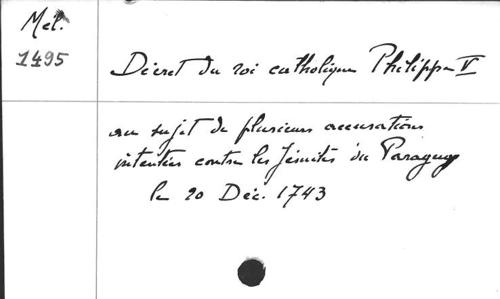 Mel.
1495
Décret du roi catholique Philippe V
au sujet de plusieurs accusations
intentées contre les Jésuites du Paraguay
le 20 Déc. 1743